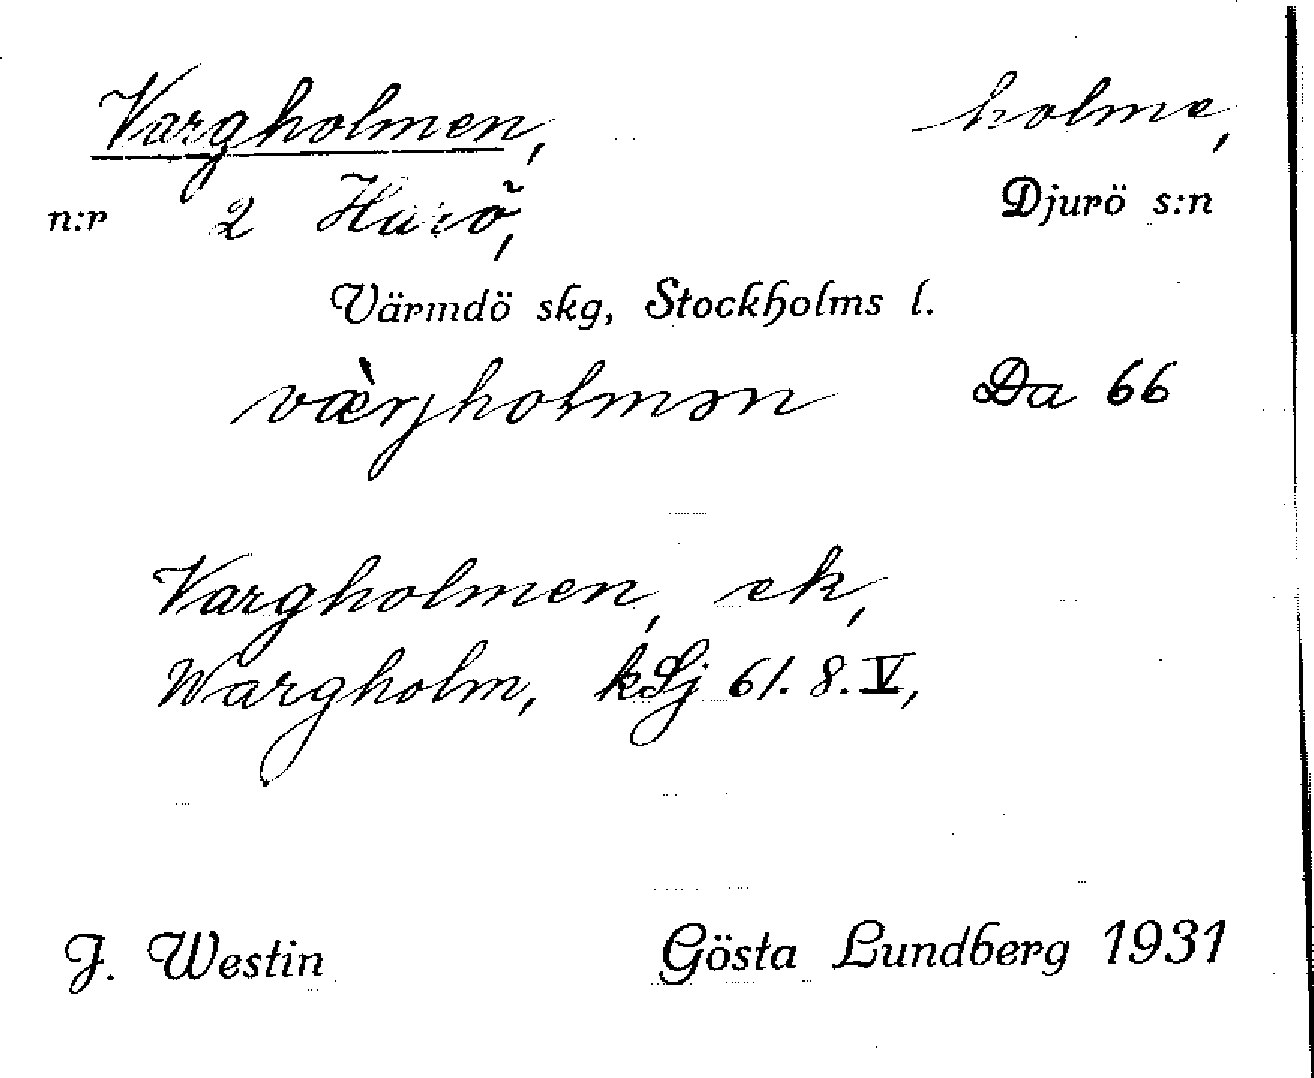 Vargholmen, holme,
n:r 2 Harö, Djurö s:n
Värmdö skg, Stockholms l.
vær̀jholmən Da 66
Vargholmen, ek,
Wargholm, kSj 61. 8. V,
J. Westin Gösta Lundberg 1931